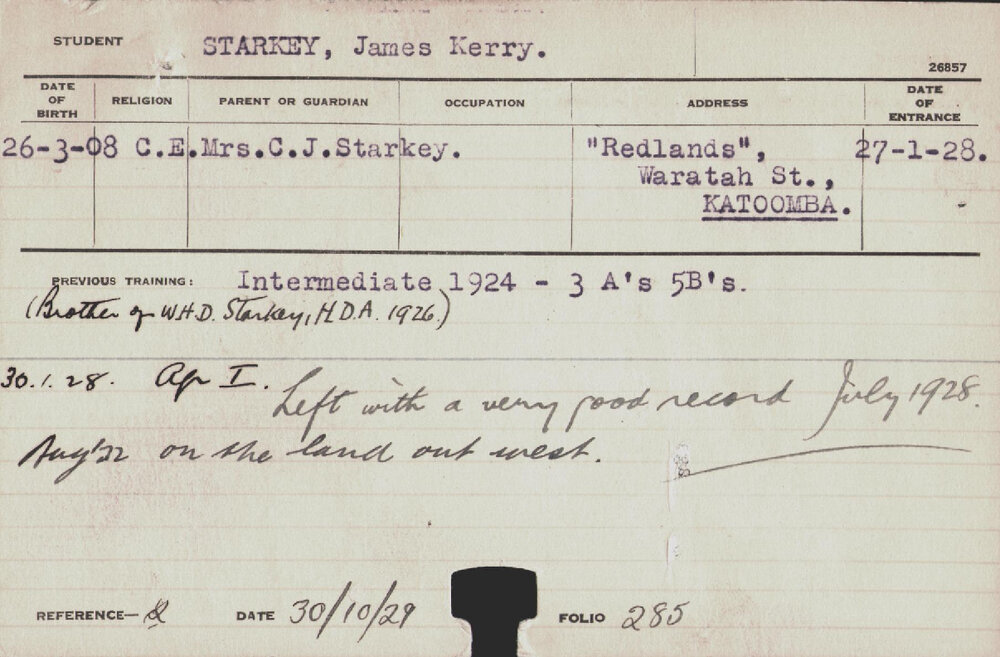 STUDENT STARKEY, James Kerry.
26857
DATE OF BIRTH RELIGION PARENT OR GUARDIAN OCCUPATION ADDRESS DATE OF ENTRANCE
26-3-08 C.E. Mrs.C.J.Starkey. "Redlands", 27-1-28.
Waratah St.,
KATOOMBA.
PREVIOUS TRAINING: Intermediate 1924 - 3 A's 5B's.
(Brother of W.H.D. Starkey, H.D.A. 1926.)
30.1.28. Ap I. Left with a very good record July 1928.
Aug '32 on the land out west.
REFERENCE- DATE 30/10/29 FOLIO 285